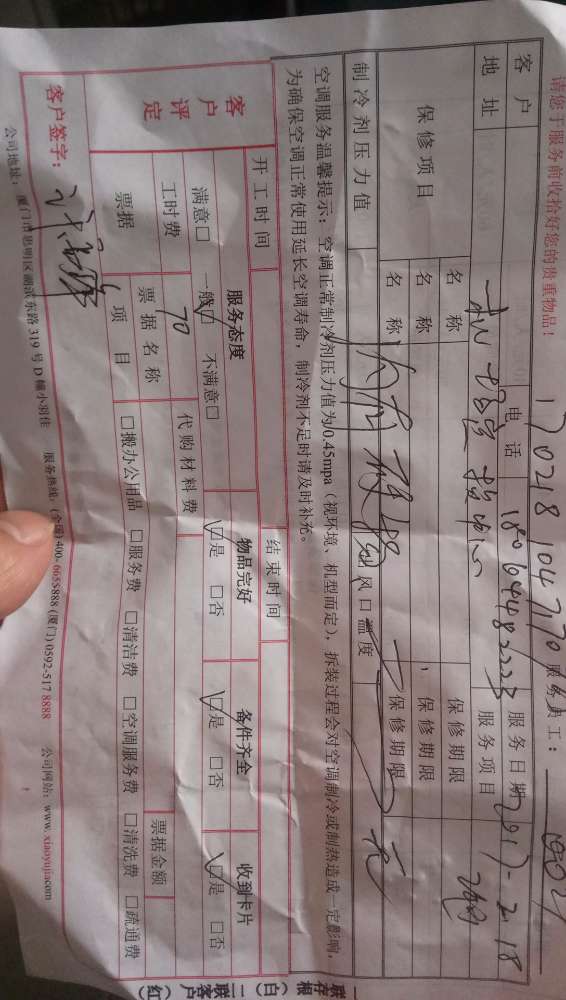 请您于服务前收拾好您的贵重物品！
服务员工：
客户 电话 18064482223 服务日期 2017-2-18
地址 服务项目
保修项目 名称 保修期限
名称 保修期限
名称 保修期限
制冷剂压力值 出风口温度
空调服务温馨提示：空调正常制冷剂压力值为/0.45mpa（视环境、机型而定）。拆装过程会对空调制冷或制热造成一定影响，
为确保空调正常使用延长空调寿命，制冷剂不足时请及时补充。
开工时间 结束时间
客户评定 服务态度 物品完好 备件齐全 收到卡片
满意□ 一般□ 不满意□ □是 □否 □是 □否 □是 □否
工时费 70 代购材料费
票据 票据名称 票据金额
项目 □搬办公用品 □服务费 □清洁费 □空调服务费 □清洗费 □疏通费
客户签字：
公司地址：厦门市思明区湖滨东路319号D幢小羽佳 服务热线：(全国)400-6655888 (厦门) 0592-517 8888 公司网站：www.xiaoyujia.com
一联存根（白） 二联客户（红）